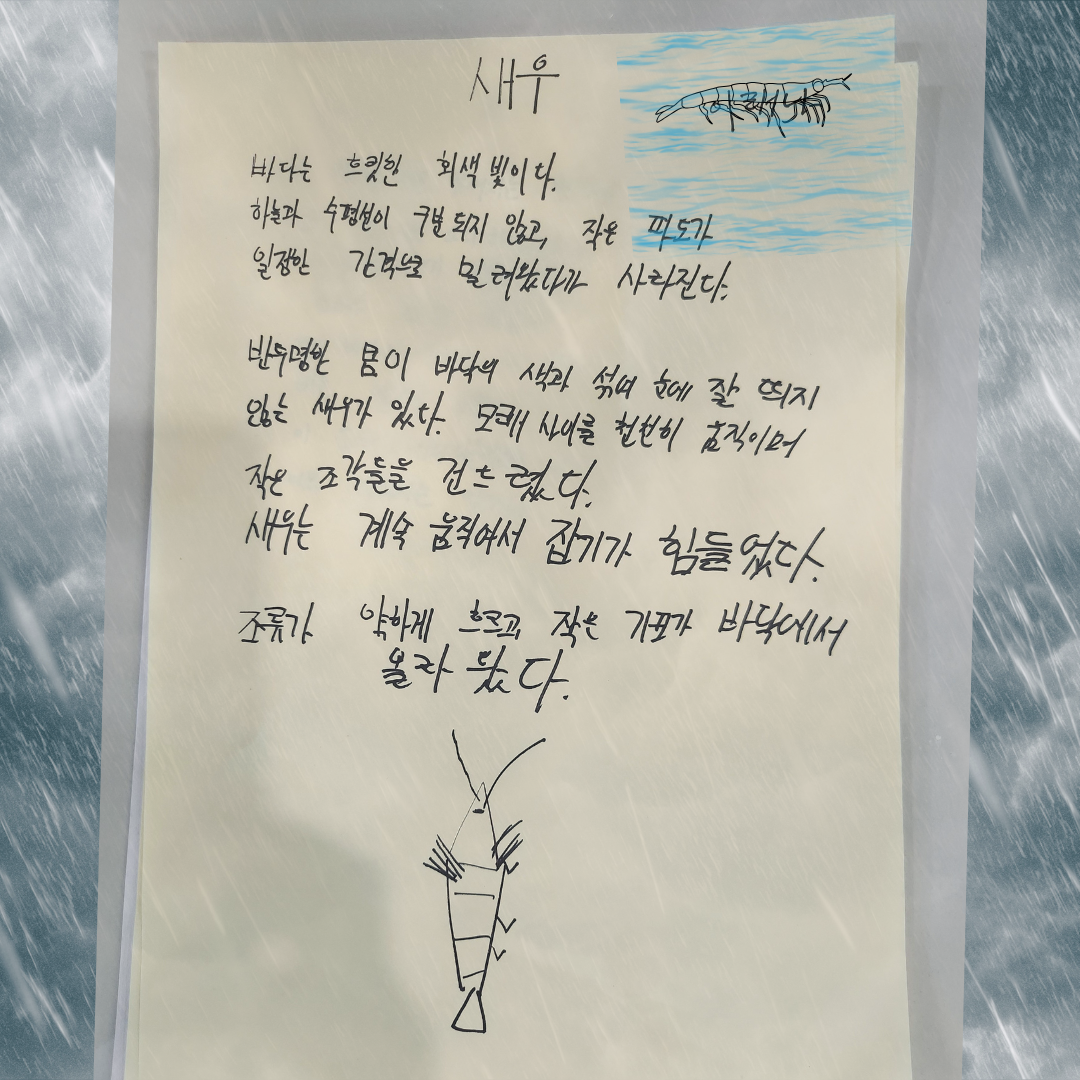 새우
바다는 흐릿한 회색 빛이다.
하늘과 수평선이 구분 되지 않고, 작은 파도가
일정한 간격으로 밀려왔다가 사라진다.
반투명한 몸이 바닥의 색과 섞여 눈에 잘 띄지
않는 새우가 있다. 모래 사이를 천천히 움직이며
작은 조각들을 건드렸다.
새우는 계속 움직여서 잡기가 힘들었다.
조류가 약하게 흐르고, 작은 기포가 바닥에서
올라 왔다.